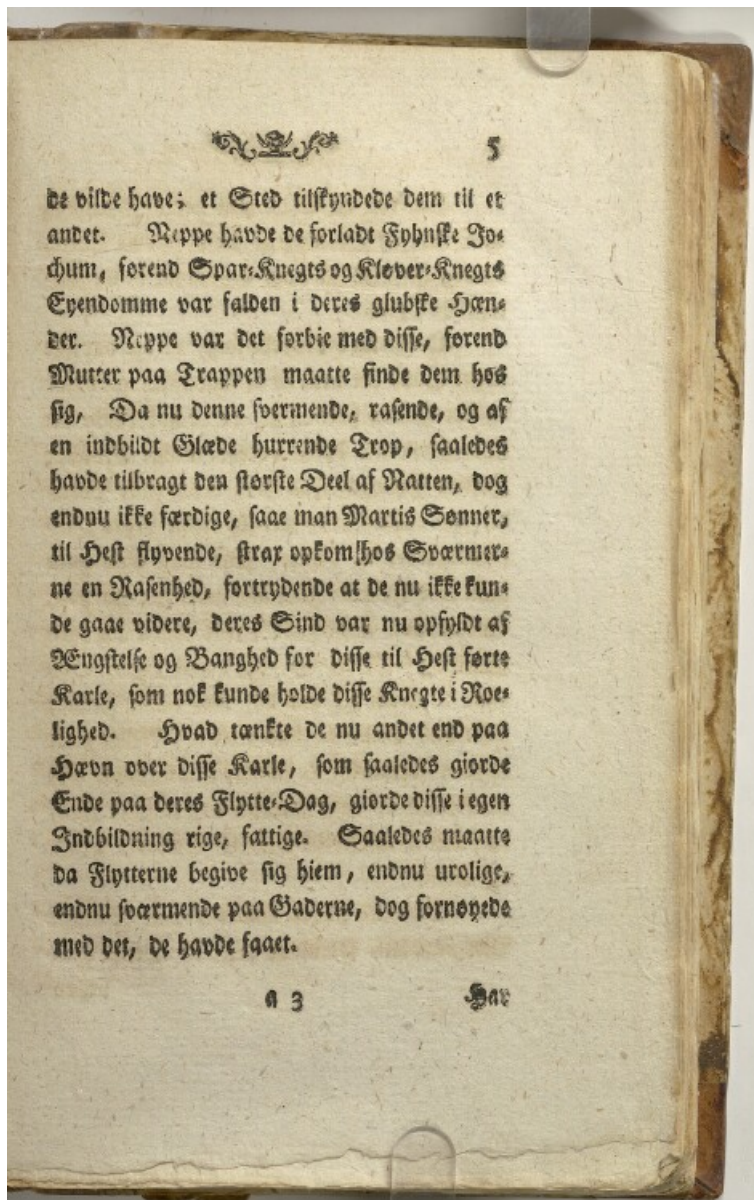 5
de vilde have; et Sted tilskyndede dem til et
andet. Neppe havde de forladt Fyhnske Jo-
chum, førend Spar-Knegts og Kløver-Knegts
Eyendomme var falden i deres glubske Hæn-
der. Neppe var det forbie med disse, førend
Mutter paa Trappen maatte finde dem hos
sig, Da nu denne sværmende, rasende, og af
en indbildt Glæde hurrende Trop, saaledes
havde tilbragt den største Deel af Natten, dog
endnu ikke færdige, saae man Martis Sønner,
til Hest flyvende, strax opkom hos Sværmer-
ne en Rasenhed, fortrydende at de nu ikke kun-
de gaae videre, deres Sind var nu opfyldt af
Ængstelse og Banghed for disse til Hest førte
Karle, som nok kunde holde disse Knegte i Roe-
lighed. Hvad tænkte de nu andet end paa
Hævn over disse Karle, som saaledes giorde
Ende paa deres Flytte-Dag, giorde disse i egen
Indbildning rige, fattige. Saaledes maatte
da Flytterne begive sig hiem, endnu urolige,
endnu sværmende paa Gaderne, dog fornøyede
med det, de havde faaet.
a 3 Har